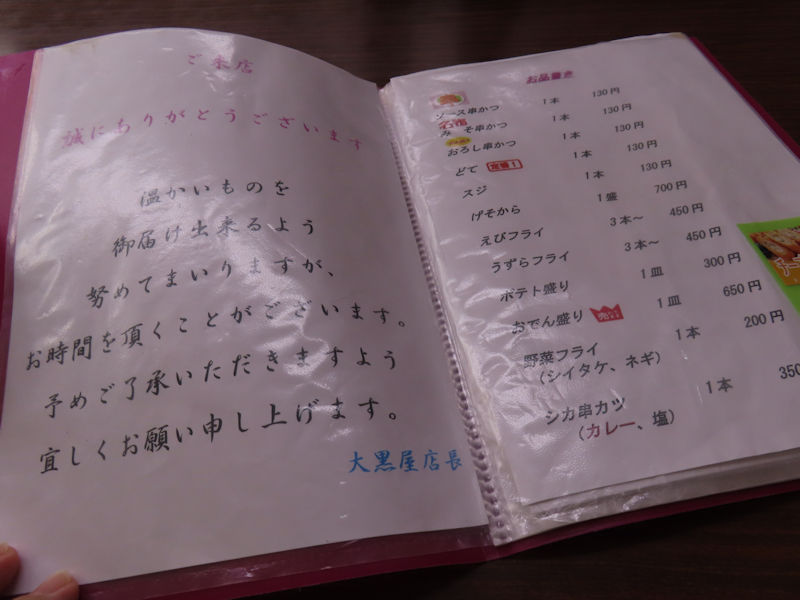 ご来店
誠にありがとうございます
温かいものを
御届け出来るよう
努めてまいりますが、
お時間を頂くことがございます。
予めご了承いただきますよう
宜しくお願い申し上げます。
大黒屋店長
お品書き
ソース串かつ 1本 130円
みそ串かつ 1本 130円
おろし串かつ 1本 130円
どて 定番! 1本 130円
スジ 1本 130円
げそから 1盛 700円
えびフライ 3本～ 450円
うずらフライ 3本～ 450円
ポテト盛り 1皿 300円
おでん盛り 1皿 650円
野菜フライ 1本 200円
(シイタケ、ネギ)
シカ串カツ 1本 350
(カレー、塩)
チー